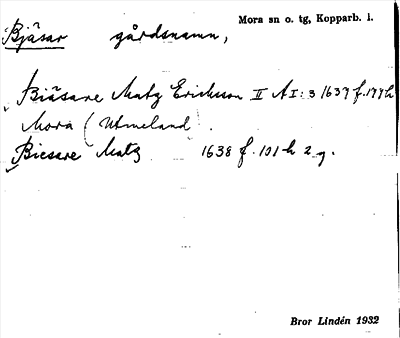 Mora sn o. tg, Kopparb. l.
Bjäsar gårdsnamn,
Biäsare Matz Ericksson II A I: 3 1637 f. 177 h
Mora (Utmeland).
Biesare Matz 1638 f. 101 h 2 g.
Bror Lindén 1932